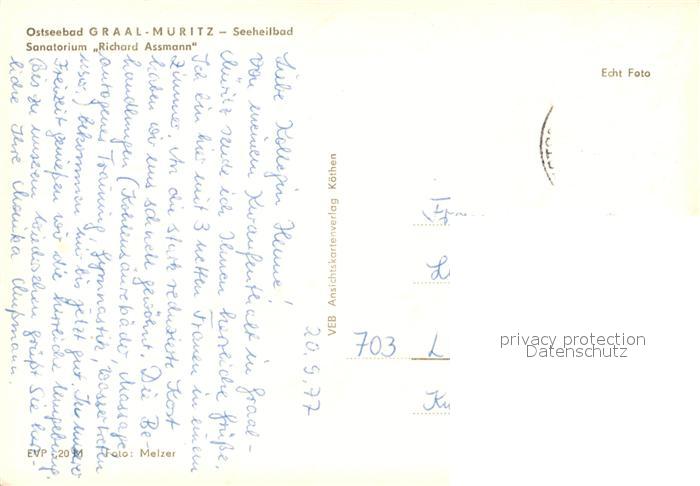 Ostseebad GRAAL-MÜRITZ – Seeheilbad
Sanatorium „Richard Assmann"
Echt Foto
Liebe Kollegin Henne!
Von meinem Kuraufenthalt in Graal-
Müritz sende ich Ihnen herzliche Grüße.
Ich bin hier mit 3 netten Frauen in einem
Zimmer. An die stark reduzierte Kost
haben wir uns schnell gewöhnt. Die Be-
handlungen (Kohlensäurebäder, Massage,
autogenes Training, Gymnastik, Wassertreten
usw.) bekommen mir bis jetzt gut. In unserer
Freizeit genießen wir die herrliche Umgebung.
Bis zu unserem Wiedersehen grüßt Sie herz-
lichst Ihre Monika
20.9.77
VEB Ansichtskartenverlag Köthen
703 L
EVP ,20 M Foto: Melzer
privacy protection
Datenschutz